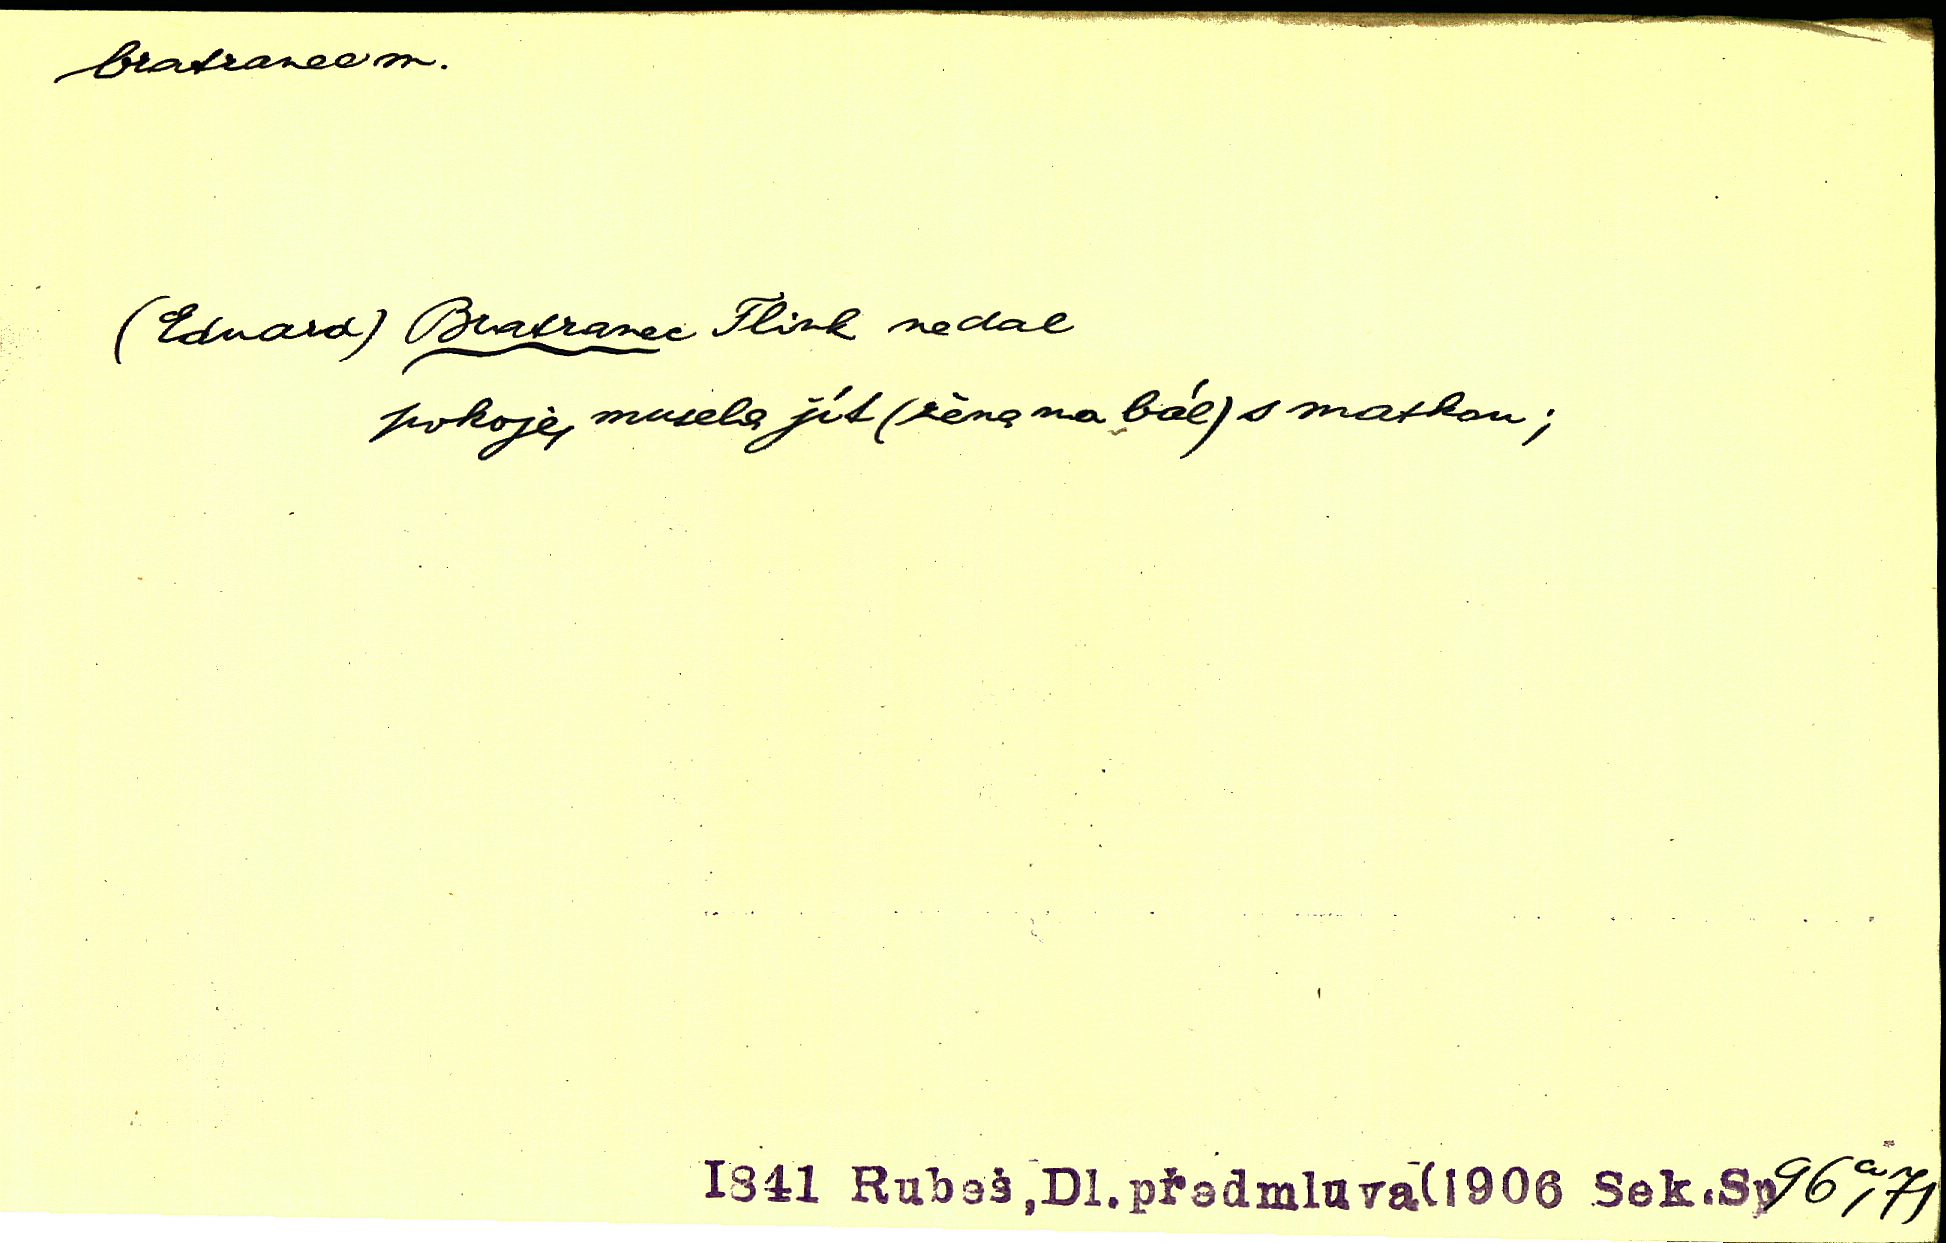 bratranec m.
(Eduard) Bratranec Flink nedal
pokoje, musela jít (žena na bál) s matkou;
1841 Rubeš, Dl. předmluva (1906 Sek. Sp